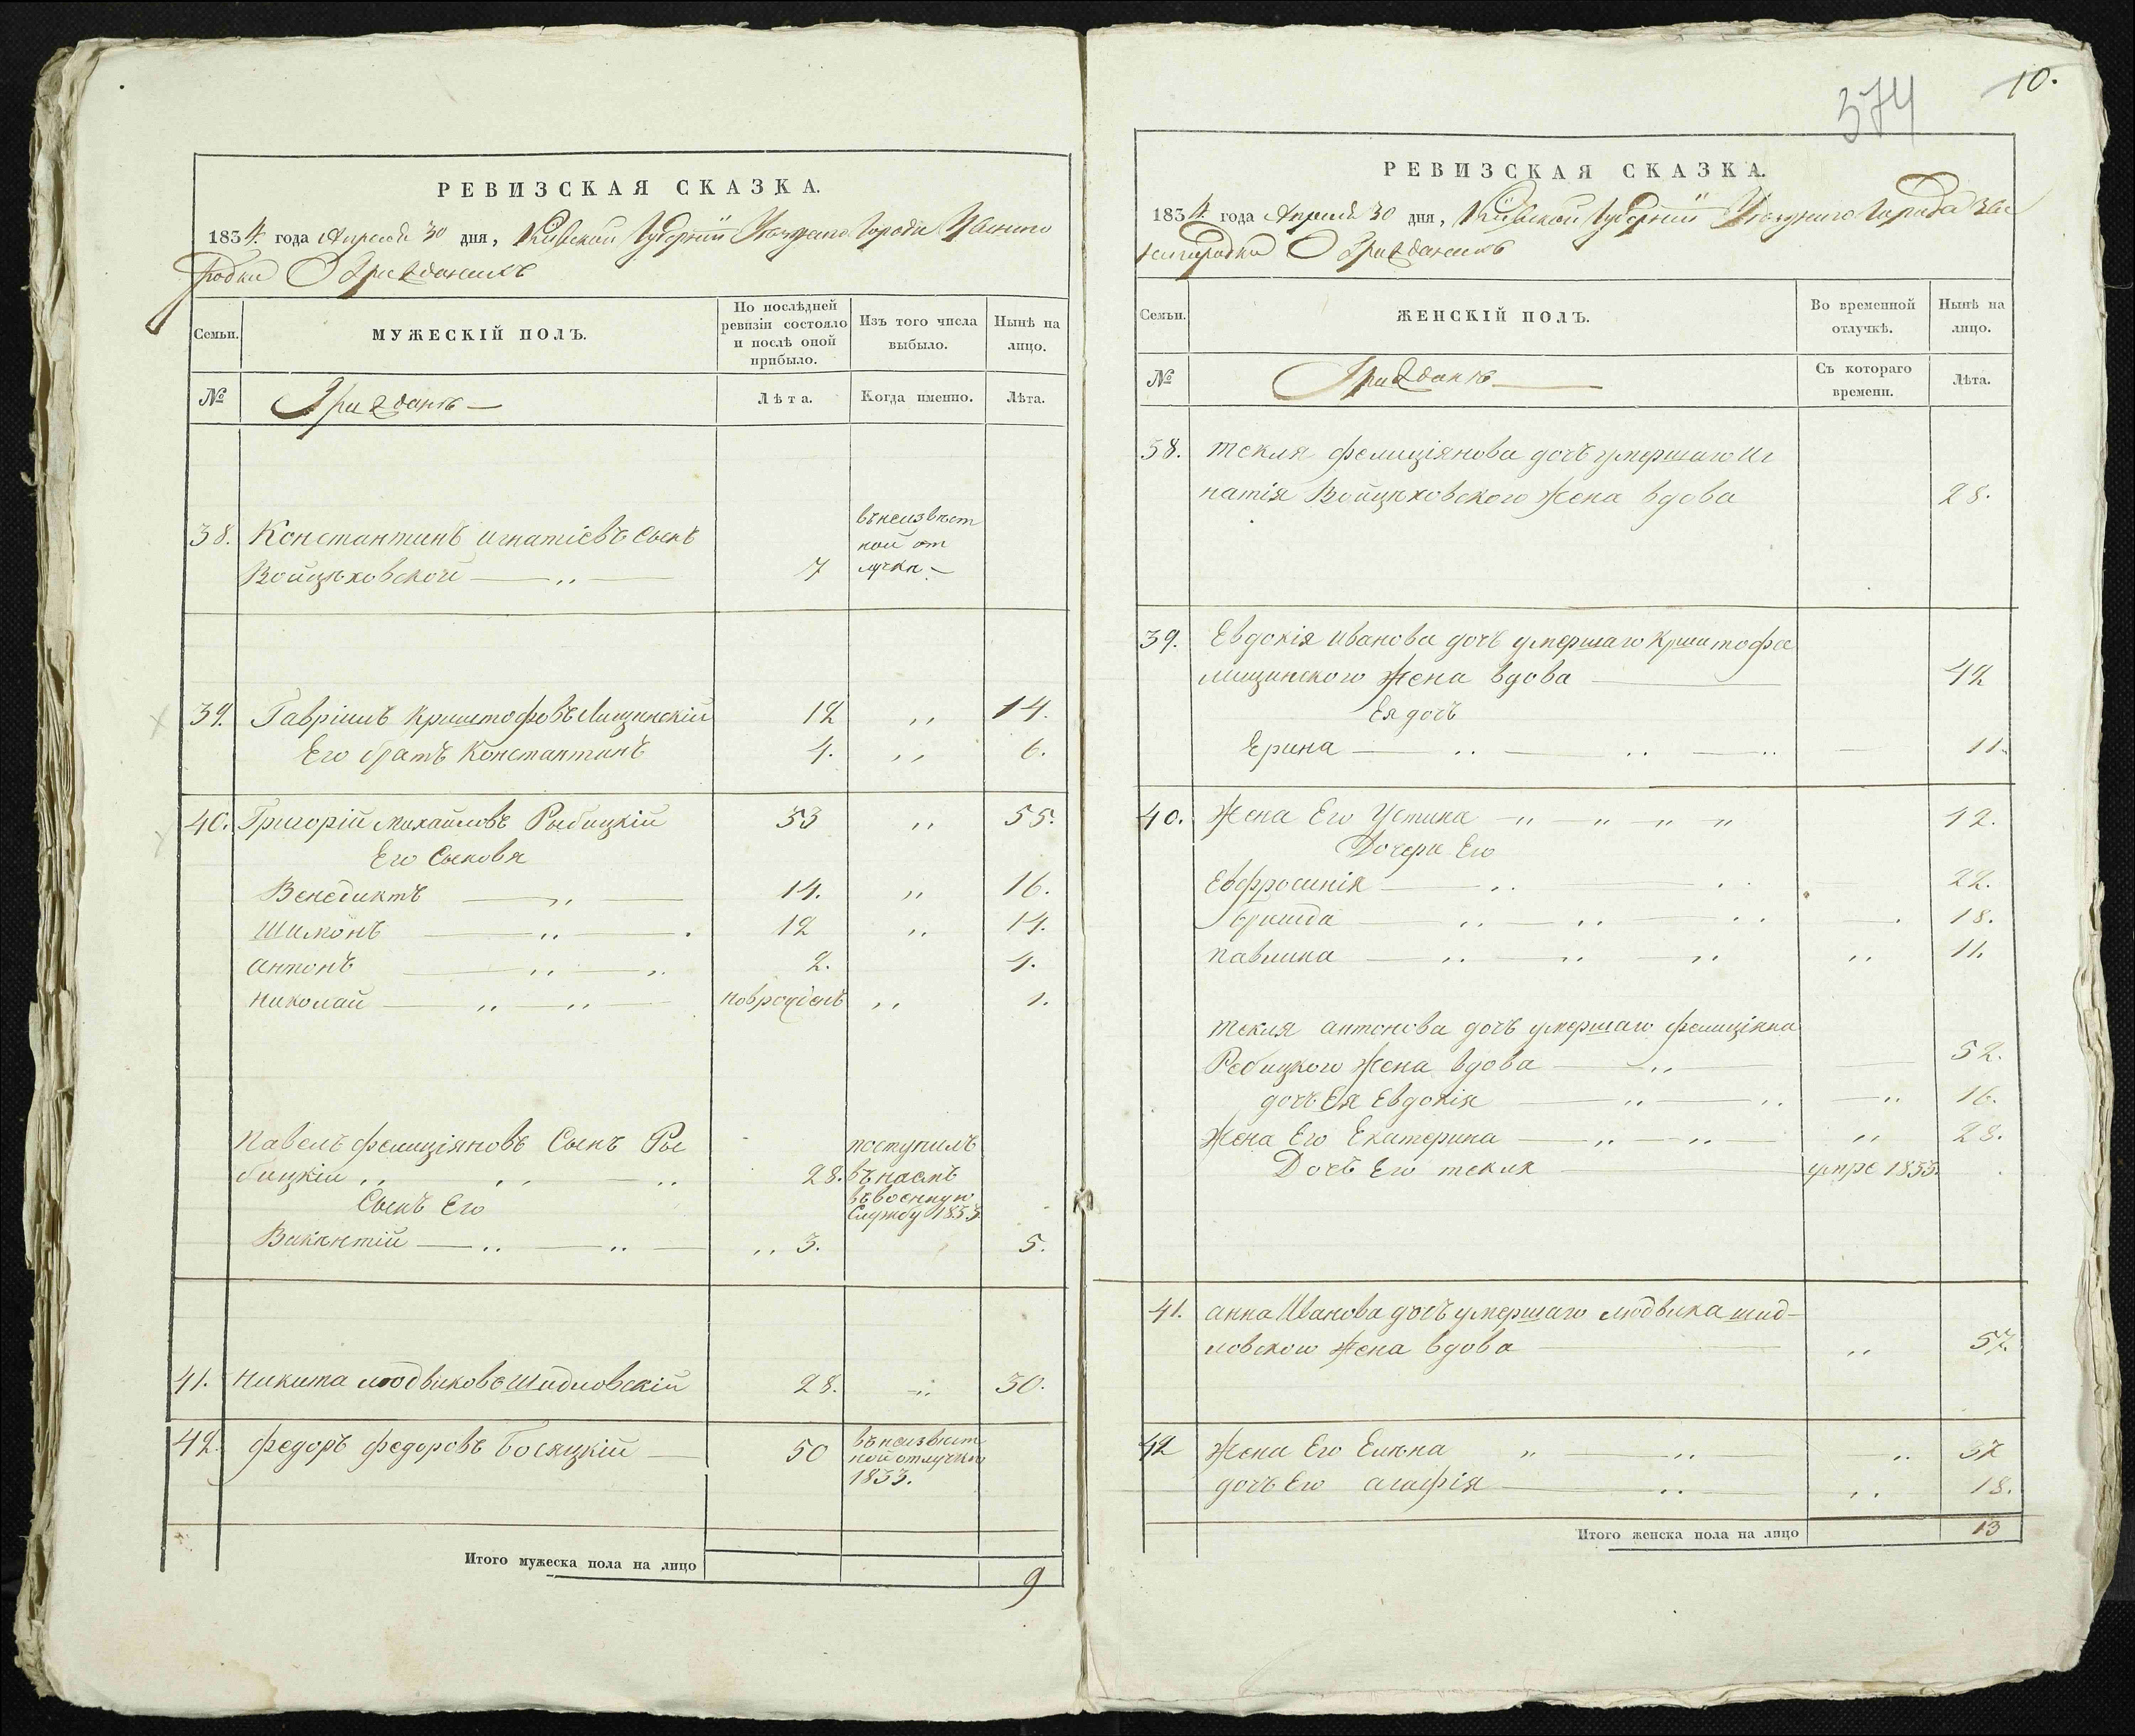 РЕВИЗСКАЯ СКАЗКА.
1834. года Апреля 30 дня, Кіевской Губерніи Уезднаго Города Звенино
родки О Гражданахъ
Семьи.
МУЖЕСКІЙ ПОЛЪ.
По послѣдней ревизіи состояло и послѣ оной прибыло.
Изъ того числа выбыло.
Нынѣ на лицо.
№
Гражданъ
Лѣта.
Когда именно.
Лѣта.
38. Константинъ Игнатіевъ Сынъ
Войцѣховской 7
въ неизвѣст
ной от
лучкѣ
39. Гавріилъ Криштофовъ Лищинскій 12 14.
Его братъ Константинъ 4. 6.
40. Григорій Михайловъ Рыбицкій 53 55.
Его Сыновя
Венедиктъ 14. 16.
Шимонъ 12 14.
Антонъ 2. 4.
Николай новрожденъ 1.
Павелъ Фелиціяновъ Сынъ Ры
бицкій 28.
поступилъ
въ наемъ
въ военную
Службу 1833
Сынъ Его
Викентій 3. 5.
41. Никита Людвиковъ Шидловскій 28. 30.
42. Федоръ Федоровъ Босяцкій 50
въ неизвѣст
ной отлучкѣ
1833.
Итого мужеска пола на лицо 9
374
10.
РЕВИЗСКАЯ СКАЗКА.
1834. года Апреля 30 дня, Кіевской Губерніи Уезднаго Города Зве
нигородки О Гражданахъ
Семьи.
ЖЕНСКІЙ ПОЛЪ.
Во временной отлучкѣ.
Нынѣ на лицо.
№
Гражданъ
Съ котораго времени.
Лѣта.
38. Текля Фелиціянова дочь умершаго Иг
натія Войцѣховского Жена вдова 28.
39. Евдокія Иванова дочь умершаго Криштофа
Лищинского Жена вдова 42
Ея дочь
Ерина 11.
40. Жена Его Устина 42.
Дочери Его
Евфросинія 22.
Бригида 18.
Павлина 11.
Текля Антонова дочь умершаго Фелиціяна
Ребицкого Жена вдова 52.
дочь Ея Евдокія 16.
Жена Его Екатерина 28.
Дочь Его Текля умре 1833.
41. Анна Иванова дочь умершаго Людвика Шид-
ловского Жена вдова 57.
42 Жена Его Елѣна 32
дочь Его Агафія 18.
Итого женска пола на лицо 13